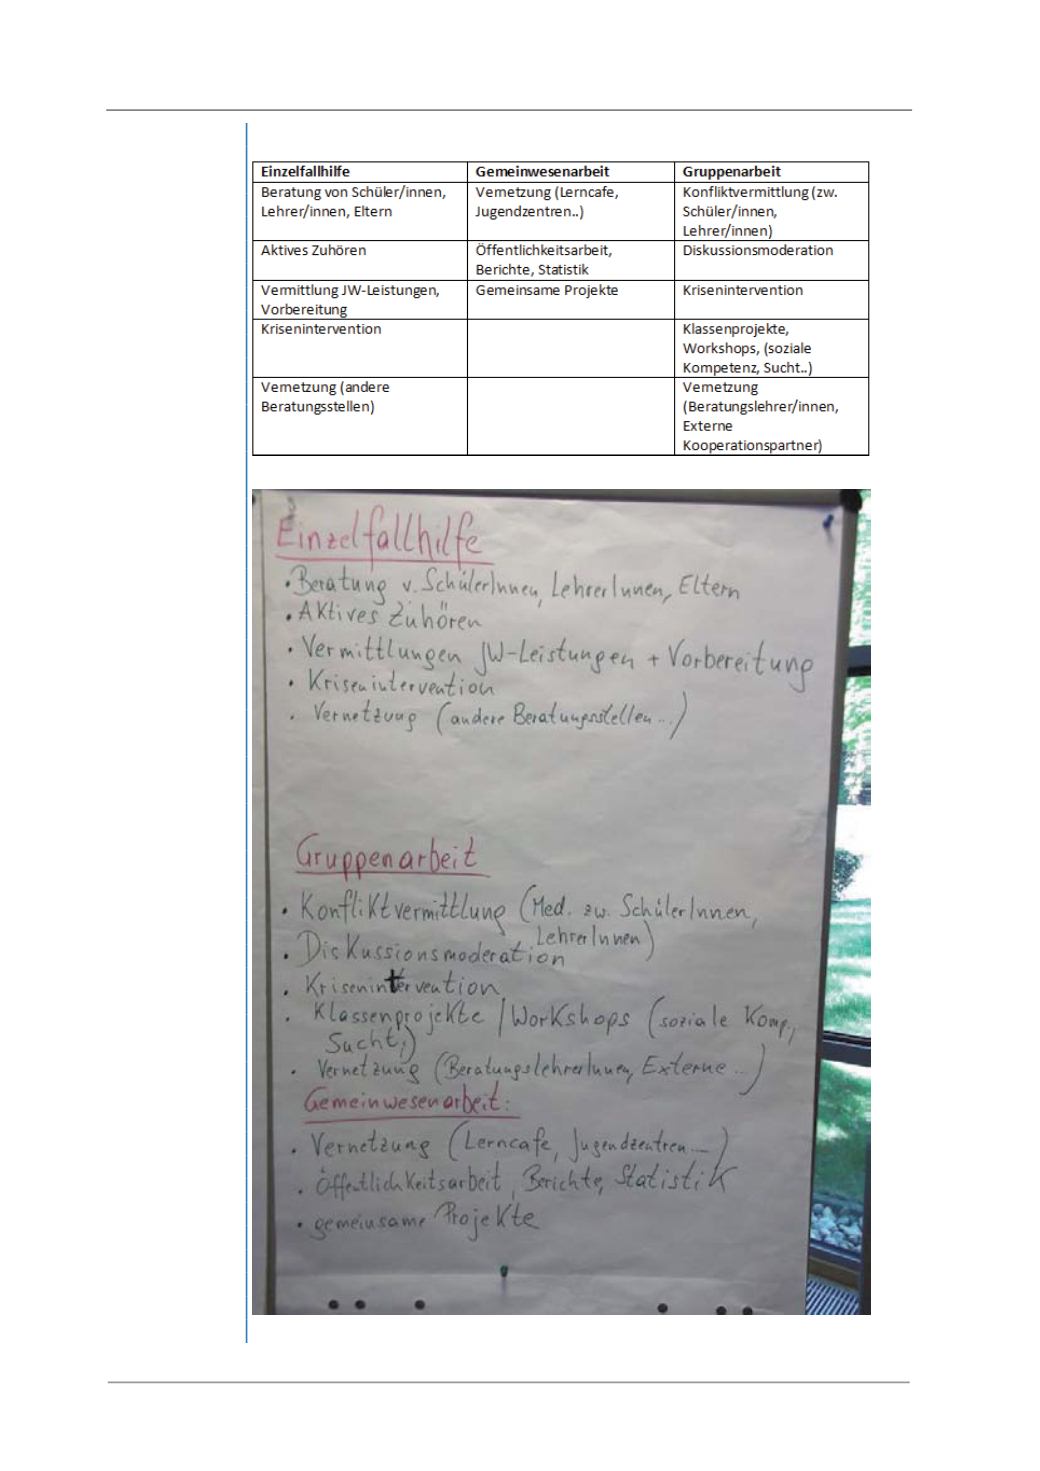 Einzelfallhilfe Gemeinwesenarbeit Gruppenarbeit
Beratung von Schüler/innen, Lehrer/innen, Eltern
Vernetzung (Lerncafe, Jugendzentren..)
Konfliktvermittlung (zw. Schüler/innen, Lehrer/innen)
Aktives Zuhören
Öffentlichkeitsarbeit, Berichte, Statistik
Diskussionsmoderation
Vermittlung JW-Leistungen, Vorbereitung
Gemeinsame Projekte
Krisenintervention
Krisenintervention
Klassenprojekte, Workshops, (soziale Kompetenz, Sucht..)
Vernetzung (andere Beratungsstellen)
Vernetzung (Beratungslehrer/innen, Externe Kooperationspartner)
Einzelfallhilfe
• Beratung v. SchülerInnen, LehrerInnen, Eltern
• Aktives Zuhören
• Vermittlungen JW-Leistungen + Vorbereitung
• Krisenintervention
• Vernetzung (andere Beratungsstellen...)
Gruppenarbeit
• Konfliktvermittlung (Med. zw. SchülerInnen,
LehrerInnen)
• Diskussionsmoderation
• Krisenintervention
• Klassenprojekte / Workshops (soziale Komp.,
Sucht,)
• Vernetzung (BeratungslehrerInnen, Externe...)
Gemeinwesenarbeit:
• Vernetzung (Lerncafe, Jugendzentren...)
• Öffentlichkeitsarbeit, Berichte, Statistik
• gemeinsame Projekte